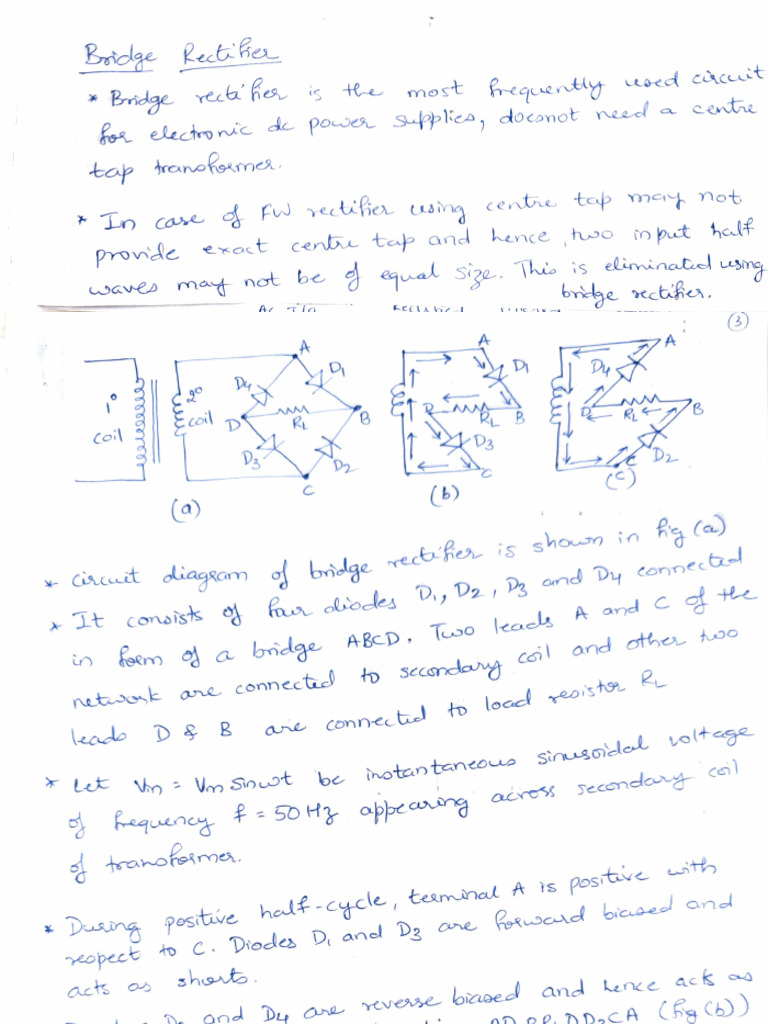 Bridge Rectifier
* Bridge rectifier is the most frequently used circuit
for electronic dc power supplies, doesnot need a centre
tap transformer.
* In case of FW rectifier using centre tap may not
provide exact centre tap and hence, two input half
waves may not be of equal size. This is eliminated using
bridge rectifier.
3
1° coil
2° coil
A
D4
D1
D
RL
B
D3
D2
C
(a)
A
D1
D
RL
B
D3
C
(b)
A
D4
D
RL
B
D2
C
(c)
* Circuit diagram of bridge rectifier is shown in fig (a)
* It consists of four diodes D1, D2, D3 and D4 connected
in form of a bridge ABCD. Two leads A and C of the
network are connected to secondary coil and other two
leads D & B are connected to load resistor RL
* Let Vin = Vm sinwt be instantaneous sinusoidal voltage
of frequency f = 50 Hz appearing across secondary coil
of transformer.
* During positive half-cycle, terminal A is positive with
respect to C. Diodes D1 and D3 are forward biased and
acts as shorts.
and D4 are reverse biased and hence acts as
(fig (b))